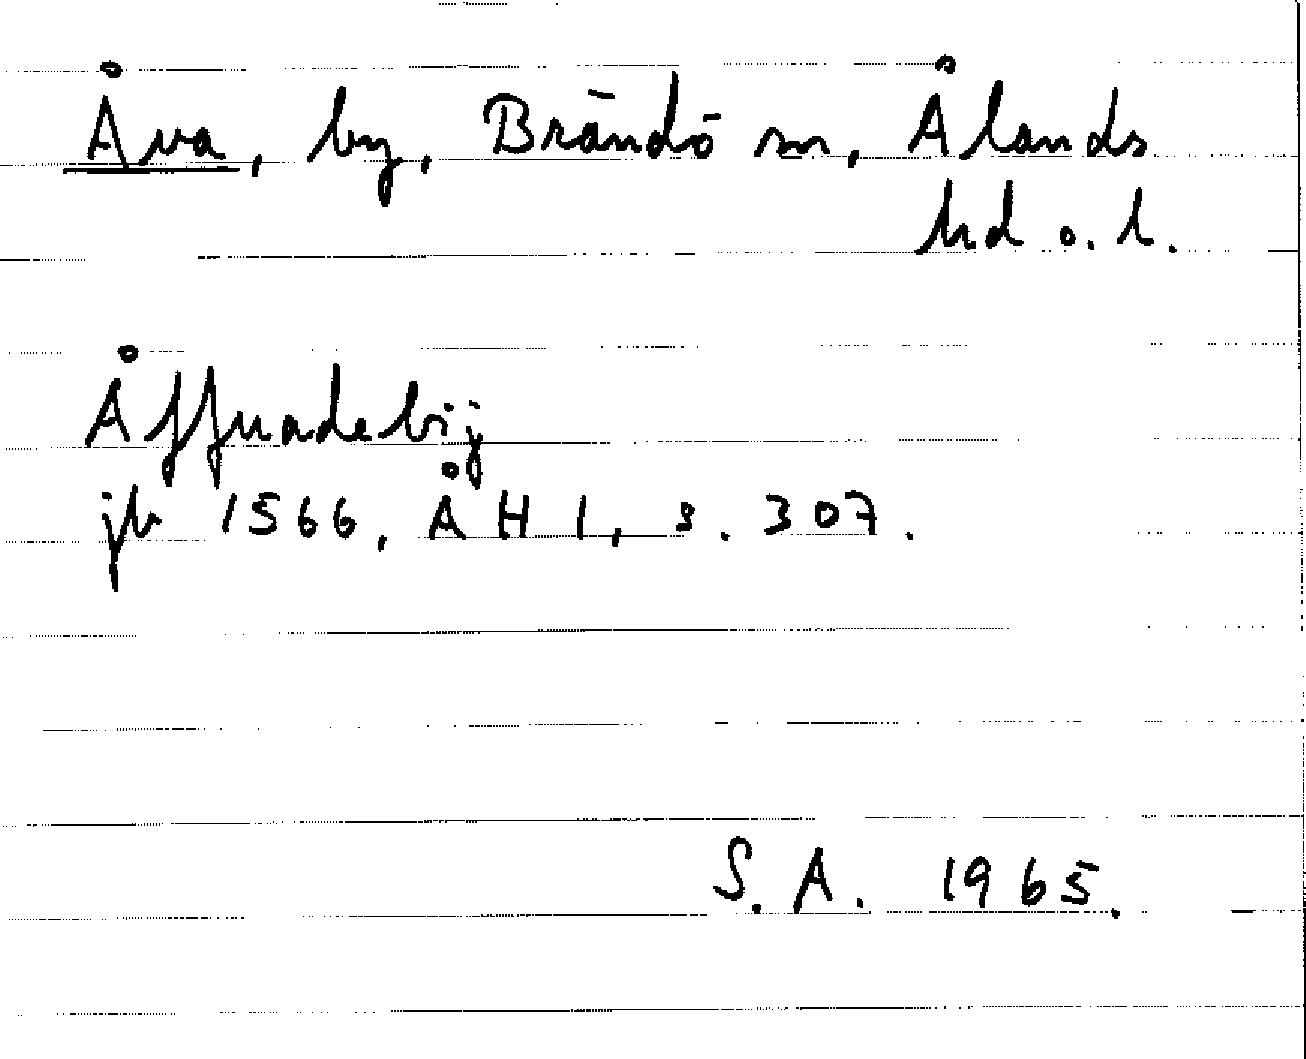 Åva, by, Brändö sn, Ålands
hd o. l.
Åffuadebij
jb 1566, ÅH I, s. 307.
S. A. 1965.